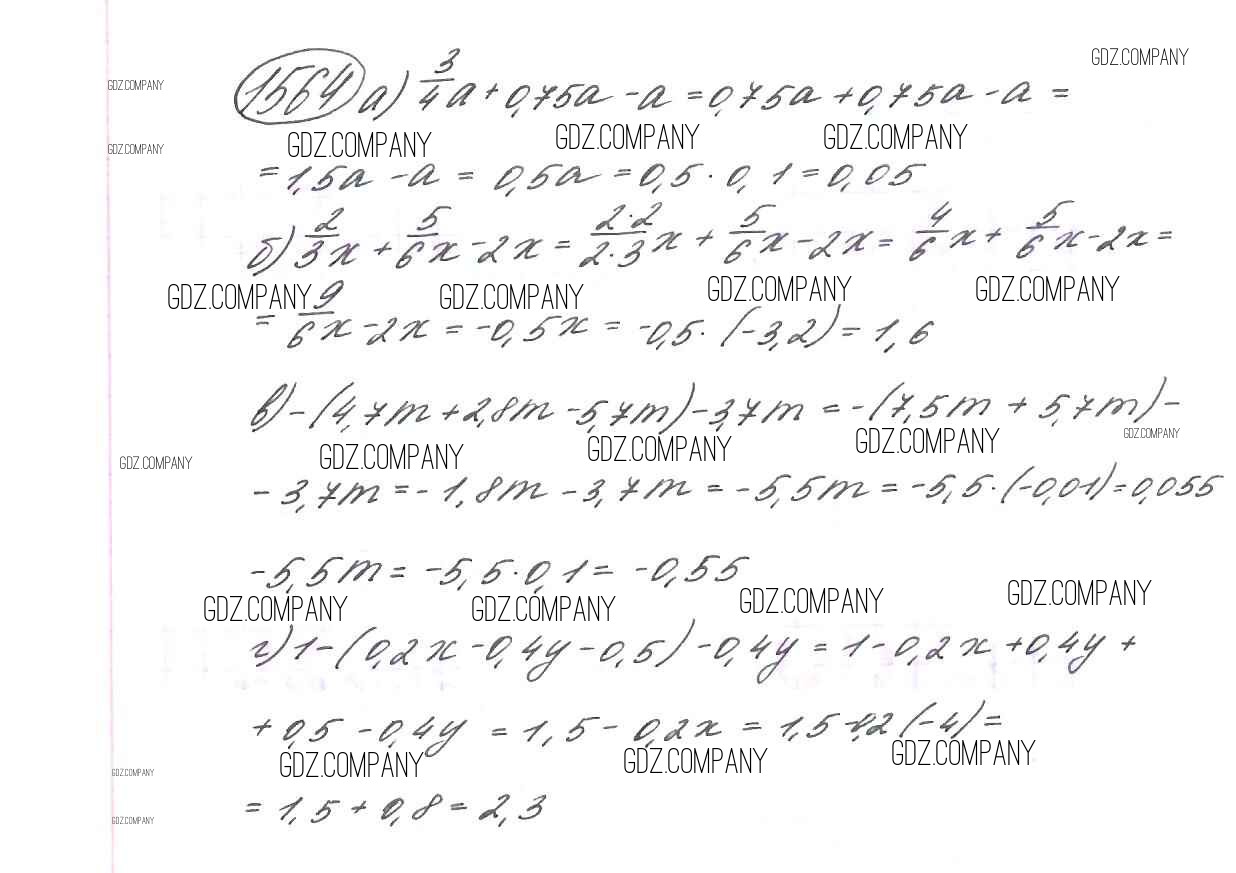 GDZ.COMPANY
GDZ.COMPANY
1564 а) 3/4a + 0,75a - a = 0,75a + 0,75a - a =
GDZ.COMPANY GDZ.COMPANY GDZ.COMPANY GDZ.COMPANY
= 1,5a - a = 0,5a = 0,5 · 0,1 = 0,05
б) 2/3x + 5/6x - 2x = 2·2/2·3x + 5/6x - 2x = 4/6x + 5/6x - 2x =
GDZ.COMPANY GDZ.COMPANY GDZ.COMPANY GDZ.COMPANY
= 9/6x - 2x = -0,5x = -0,5 · (-3,2) = 1,6
в) -(4,7m + 2,8m - 5,7m) - 3,7m = -(7,5m + 5,7m) -
GDZ.COMPANY GDZ.COMPANY GDZ.COMPANY GDZ.COMPANY GDZ.COMPANY
- 3,7m = - 1,8m - 3,7m = - 5,5m = -5,5 · (-0,01) = 0,055
-5,5m = -5,5 · 0,1 = -0,55
GDZ.COMPANY GDZ.COMPANY GDZ.COMPANY GDZ.COMPANY
г) 1 - (0,2x - 0,4y - 0,5) - 0,4y = 1 - 0,2x + 0,4y +
+ 0,5 - 0,4y = 1,5 - 0,2x = 1,5 - 0,2 (-4) =
GDZ.COMPANY GDZ.COMPANY GDZ.COMPANY GDZ.COMPANY
= 1,5 + 0,8 = 2,3
GDZ.COMPANY